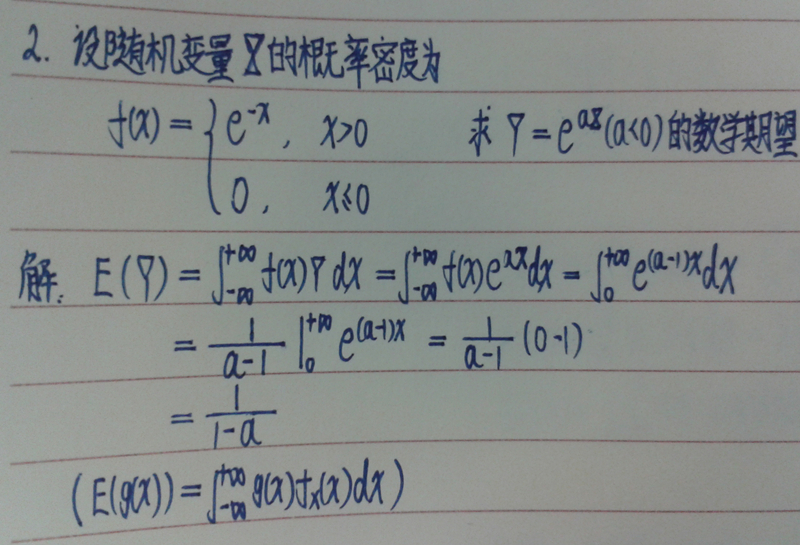 2. 设随机变量 X 的概率密度为
f(x) = { e^{-x}, x>0 求 Y = e^{aX} (a<0) 的数学期望
0, x≤0
解: E(Y) = ∫_{-∞}^{+∞} f(x) Y dx = ∫_{-∞}^{+∞} f(x) e^{ax} dx = ∫_0^{+∞} e^{(a-1)x} dx
= \frac{1}{a-1} |_0^{+∞} e^{(a-1)x} = \frac{1}{a-1} (0-1)
= \frac{1}{1-a}
(E(g(x)) = ∫_{-∞}^{+∞} g(x) f_x(x) dx)